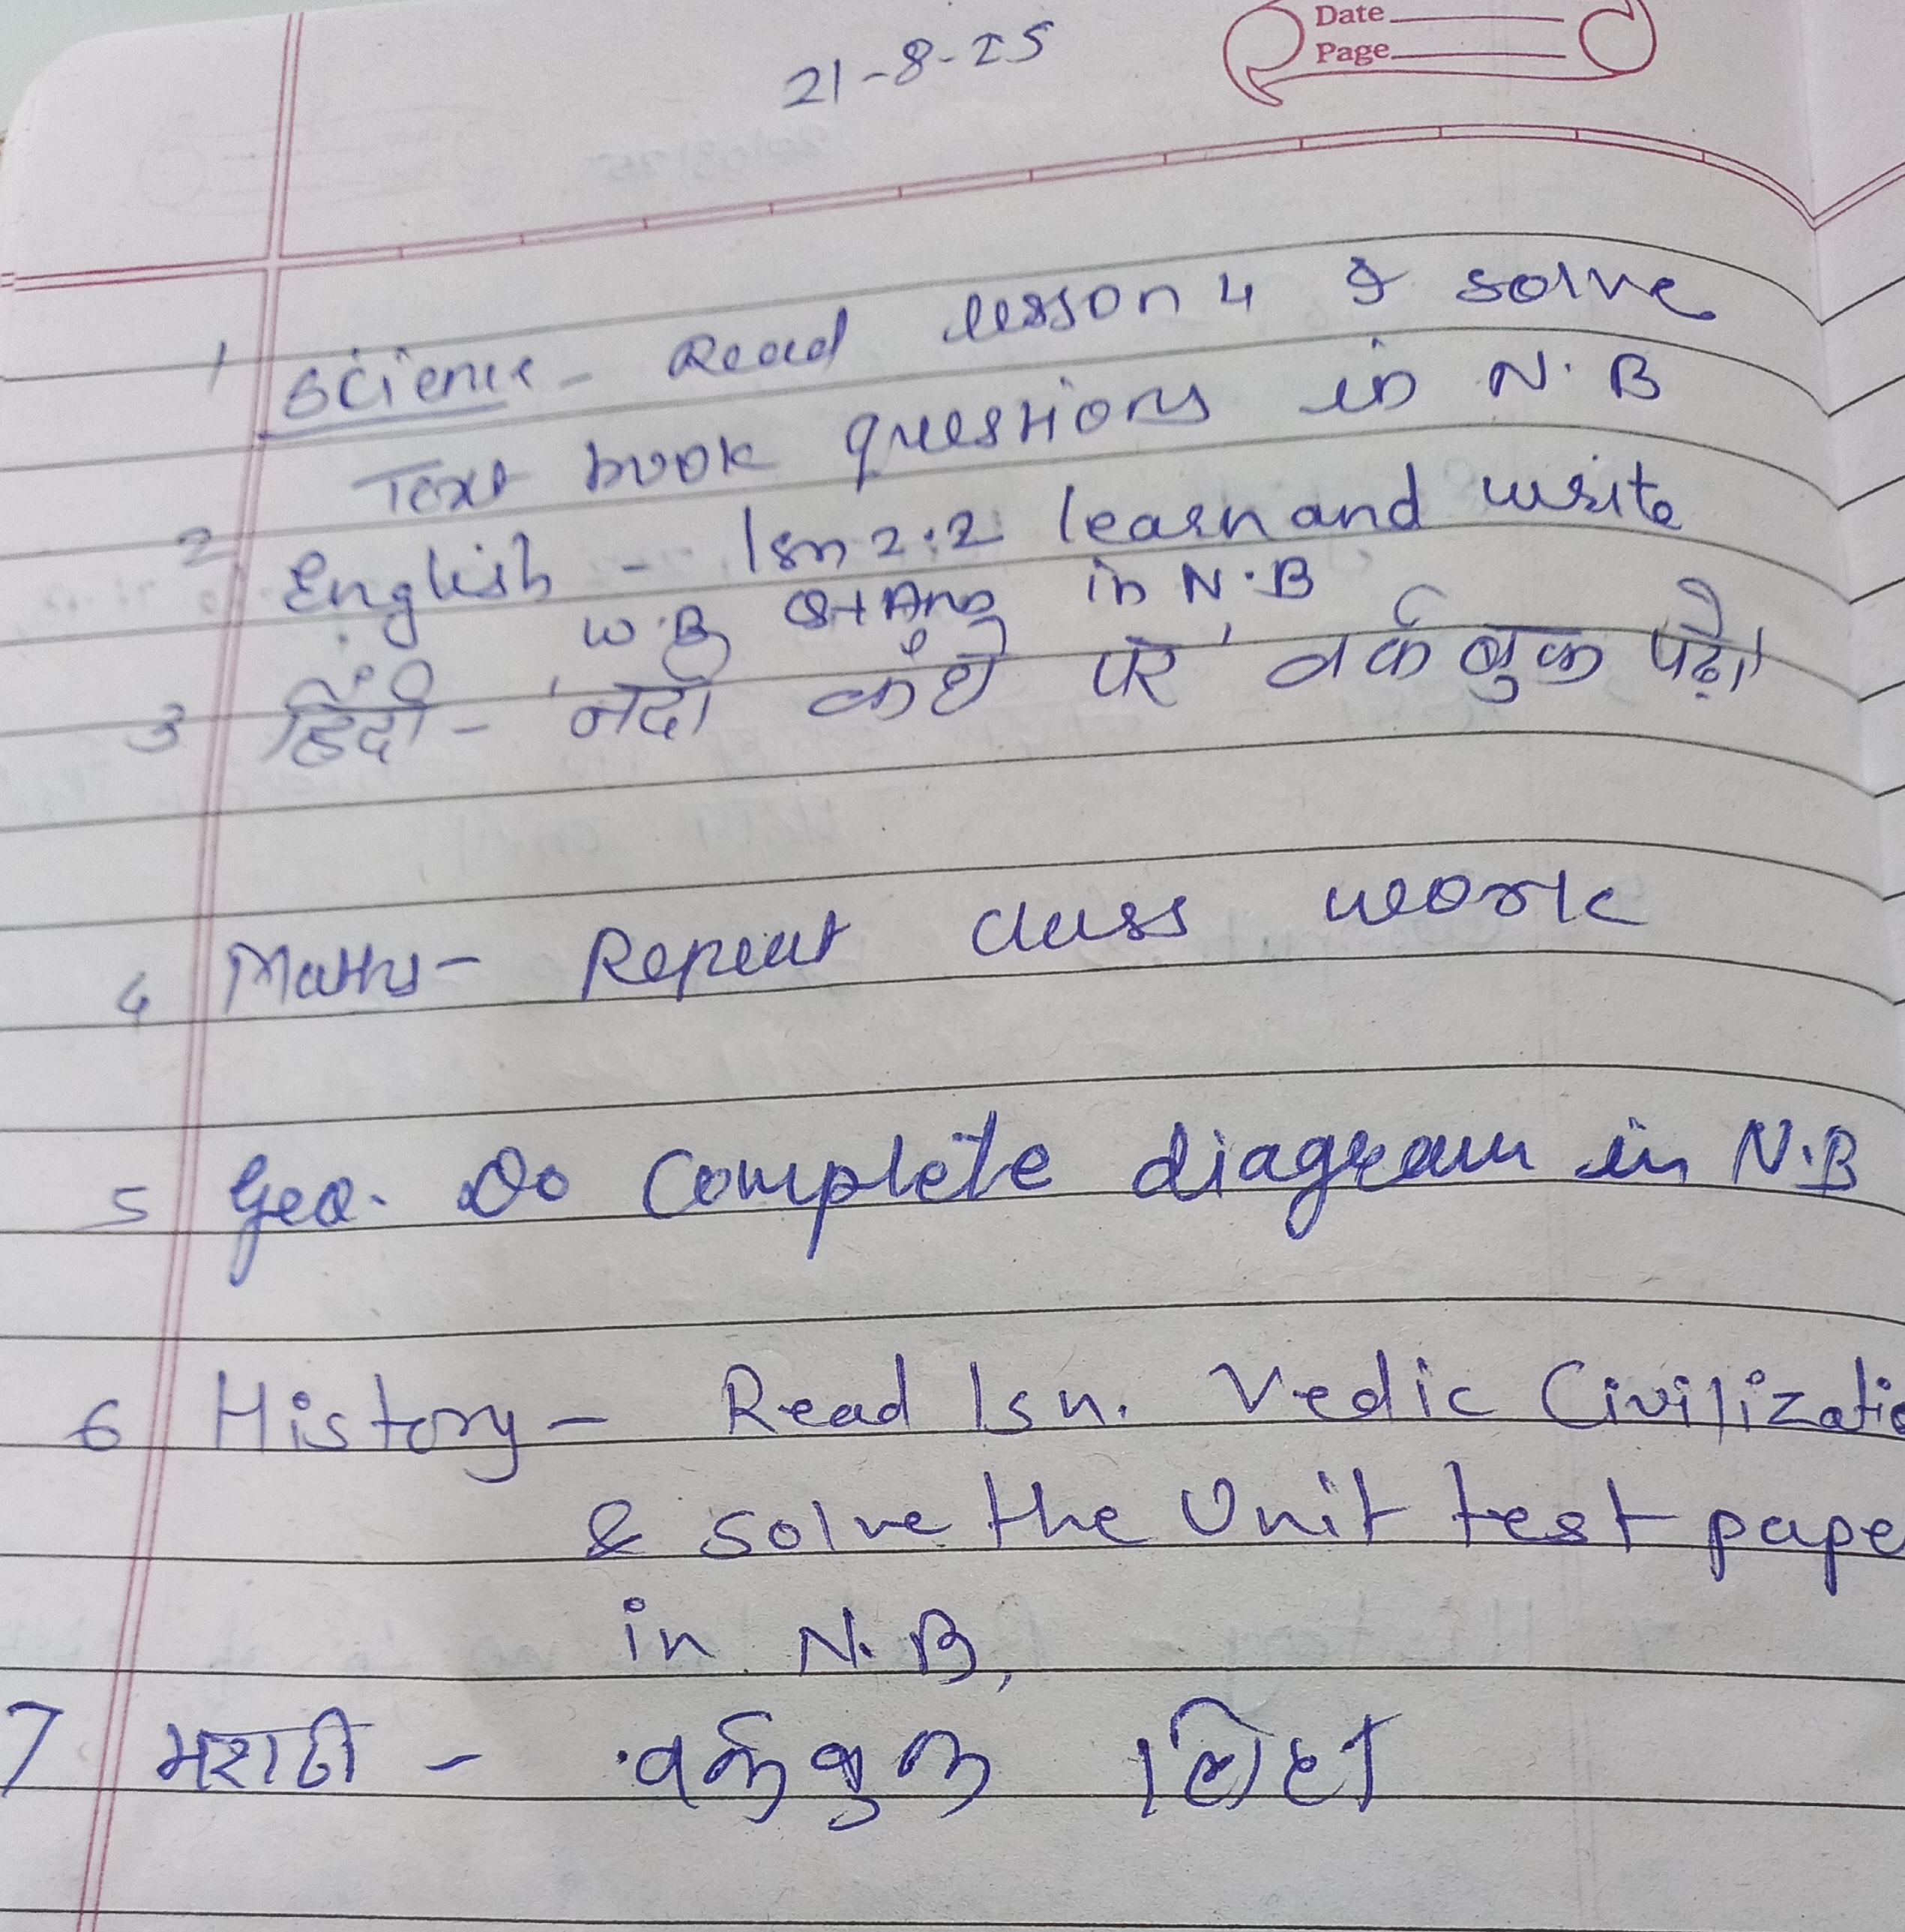 Date
Page
21-8-25
1 Science - Read lesson 4 & solve
Text book questions in N.B
2 English - lsn 2.2 learn and write
W.B Q+Ans in N.B
3 हिंदी - 'नदी कंधे पर' वर्कबुक पढ़ो
4 Maths - Repeat class work
5 Geo. Do Complete diagram in N.B
6 History - Read lsn. Vedic Civilizatio
& solve the Unit test pape
in N.B,
7 मराठी - वर्कबुक लिहा